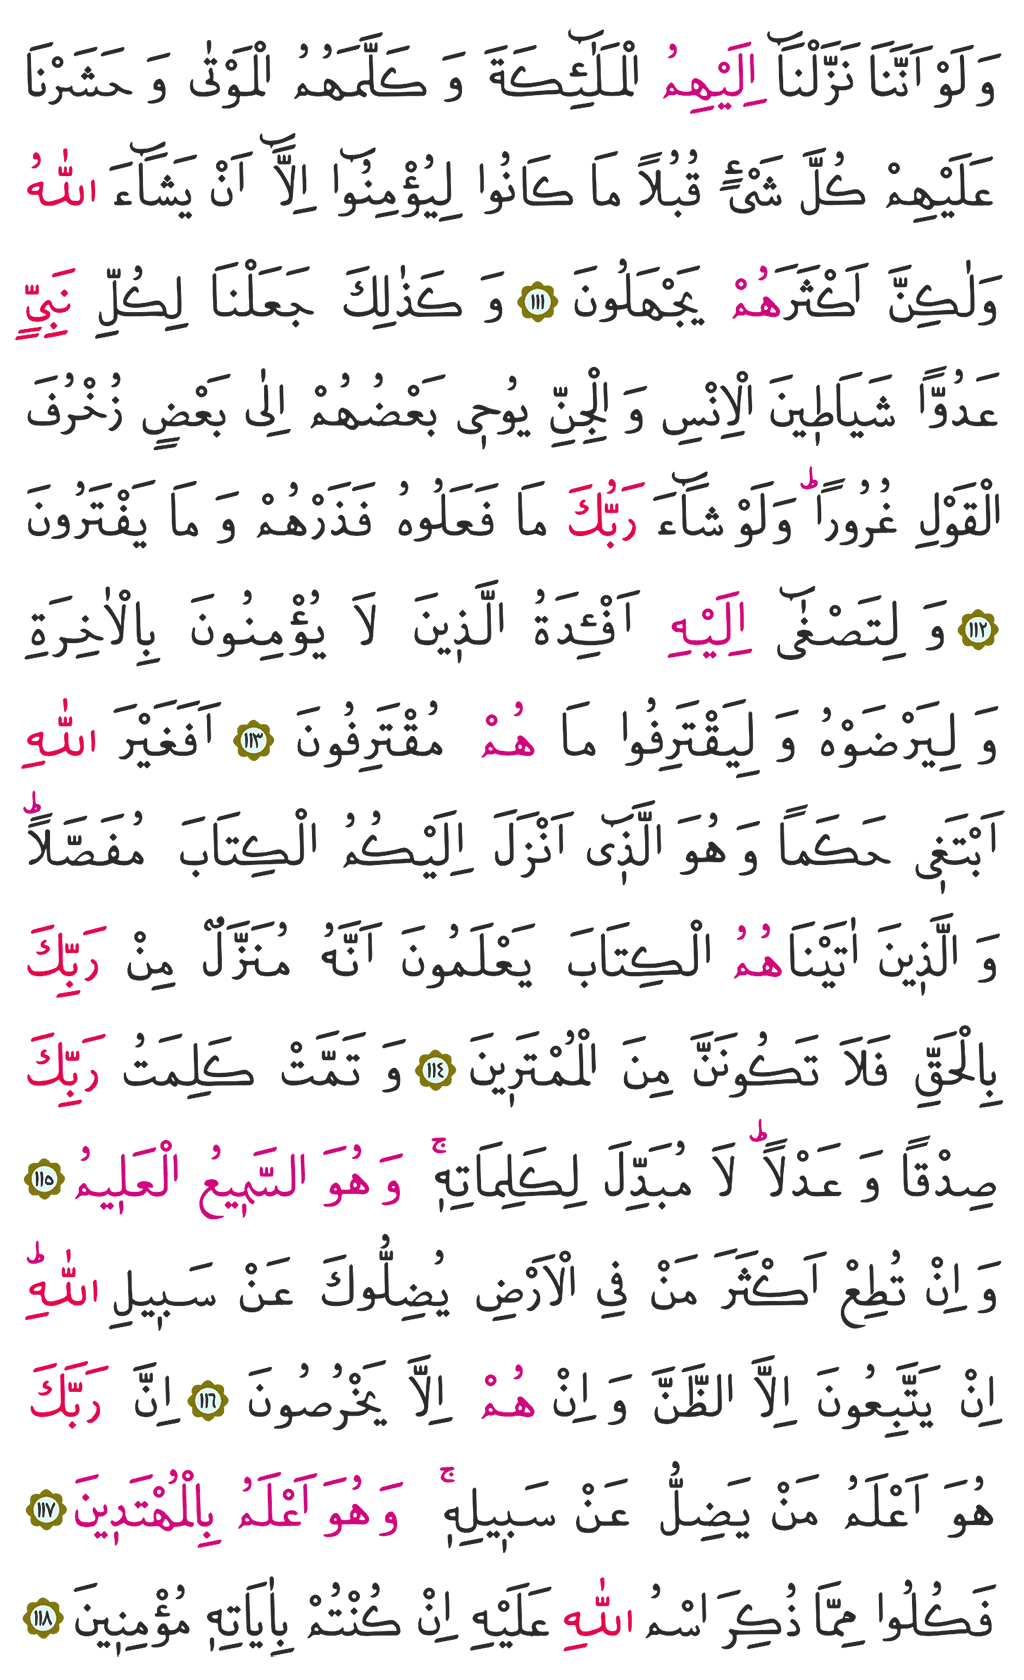 وَ لَوْ اَنَّنَا نَزَّلْنَآ اِلَيْهِمُ الْمَلٰٓئِكَةَ وَ كَلَّمَهُمُ الْمَوْتٰى وَ حَشَرْنَا
عَلَيْهِمْ كُلَّ شَىْءٍ قُبُلاً مَا كَانُوا لِيُؤْمِنُوٓا اِلآَّ اَنْ يَشَآءَ اللّٰهُ
وَلٰكِنَّ اَكْثَرَهُمْ يَجْهَلُونَ ﴿١١١﴾ وَ كَذٰلِكَ جَعَلْنَا لِكُلِّ نَبِىٍّ
عَدُوًّا شَيَاطٖينَ الْاِنْسِ وَ الْجِنِّ يُوحٖى بَعْضُهُمْ اِلٰى بَعْضٍ زُخْرُفَ
الْقَوْلِ غُرُورًاؕ وَلَوْ شَآءَ رَبُّكَ مَا فَعَلُوهُ فَذَرْهُمْ وَ مَا يَفْتَرُونَ
﴿١١٢﴾ وَ لِتَصْغٰٓى اِلَيْهِ اَفْـِٔدَةُ الَّذٖينَ لَا يُؤْمِنُونَ بِالْاٰخِرَةِ
وَ لِيَرْضَوْهُ وَ لِيَقْتَرِفُوا مَا هُمْ مُقْتَرِفُونَ ﴿١١٣﴾ اَفَغَيْرَ اللّٰهِ
اَبْتَغٖى حَكَماً وَ هُوَ الَّذٖٓى اَنْزَلَ اِلَيْكُمُ الْكِتَابَ مُفَصَّلاًؕ
وَ الَّذٖينَ اٰتَيْنَاهُمُ الْكِتَابَ يَعْلَمُونَ اَنَّهُ مُنَزَّلٌ مِنْ رَبِّكَ
بِالْحَقِّ فَلَا تَكُونَنَّ مِنَ الْمُمْتَرٖينَ ﴿١١٤﴾ وَ تَمَّتْ كَلِمَتُ رَبِّكَ
صِدْقاً وَ عَدْلاًؕ لَا مُبَدِّلَ لِكَلِمَاتِهٖۚ وَ هُوَ السَّمٖيعُ الْعَلٖيمُ ﴿١١٥﴾
وَ اِنْ تُطِعْ اَكْثَرَ مَنْ فِى الْاَرْضِ يُضِلُّوكَ عَنْ سَبٖيلِ اللّٰهِؕ
اِنْ يَتَّبِعُونَ اِلاَّ الظَّنَّ وَ اِنْ هُمْ اِلاَّ يَخْرُصُونَ ﴿١١٦﴾ اِنَّ رَبَّكَ
هُوَ اَعْلَمُ مَنْ يَضِلُّ عَنْ سَبٖيلِهٖۚ وَ هُوَ اَعْلَمُ بِالْمُهْتَدٖينَ ﴿١١٧﴾
فَكُلُوا مِمَّا ذُكِرَ اسْمُ اللّٰهِ عَلَيْهِ اِنْ كُنْتُمْ بِاٰيَاتِهٖ مُؤْمِنٖينَ ﴿١١٨﴾